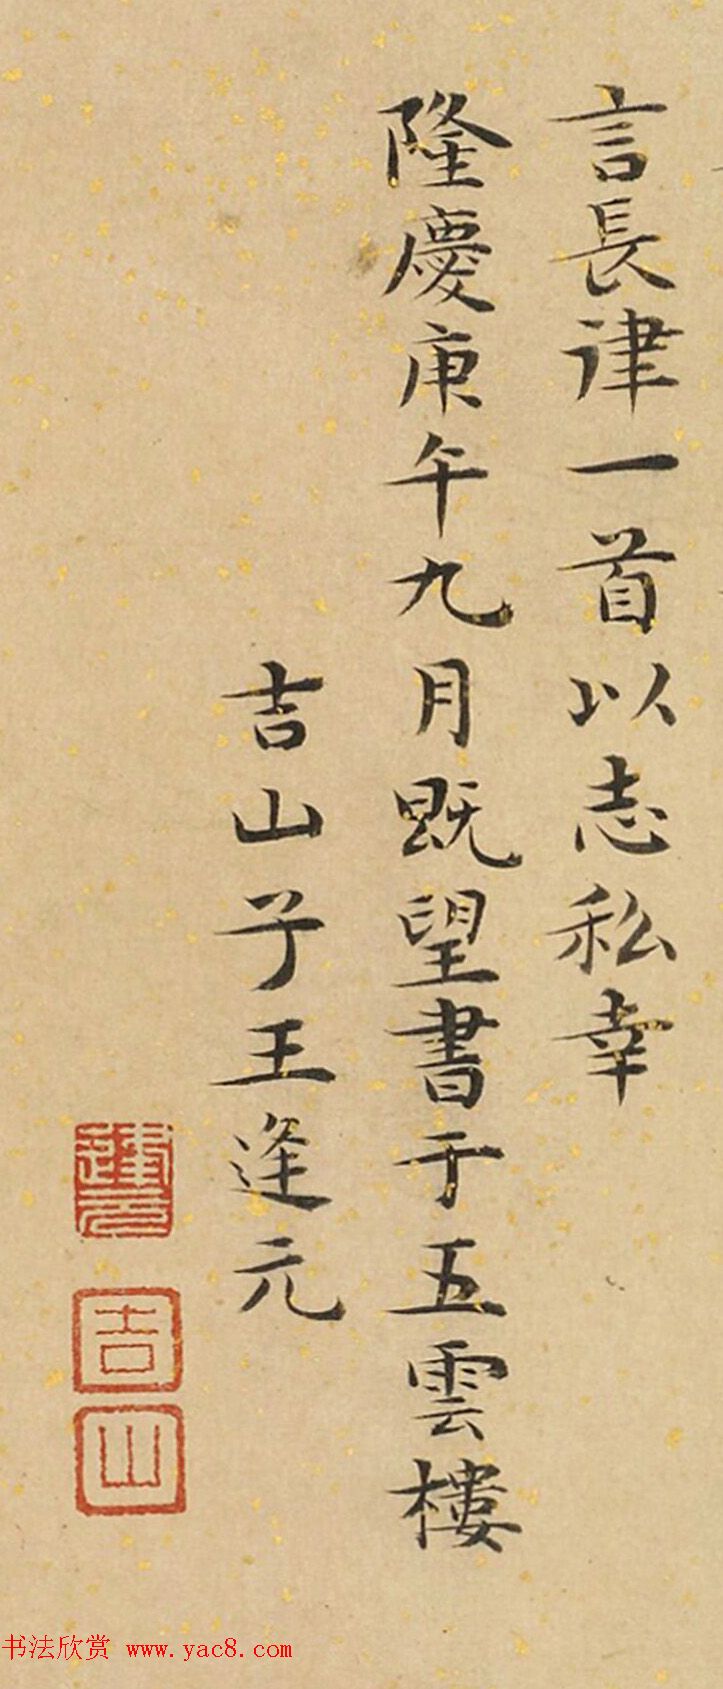 言長律一首以志私幸
隆慶庚午九月既望書于五雲樓
吉山子王逢元
逢元
吉
山
书法欣赏 www.yac8.com